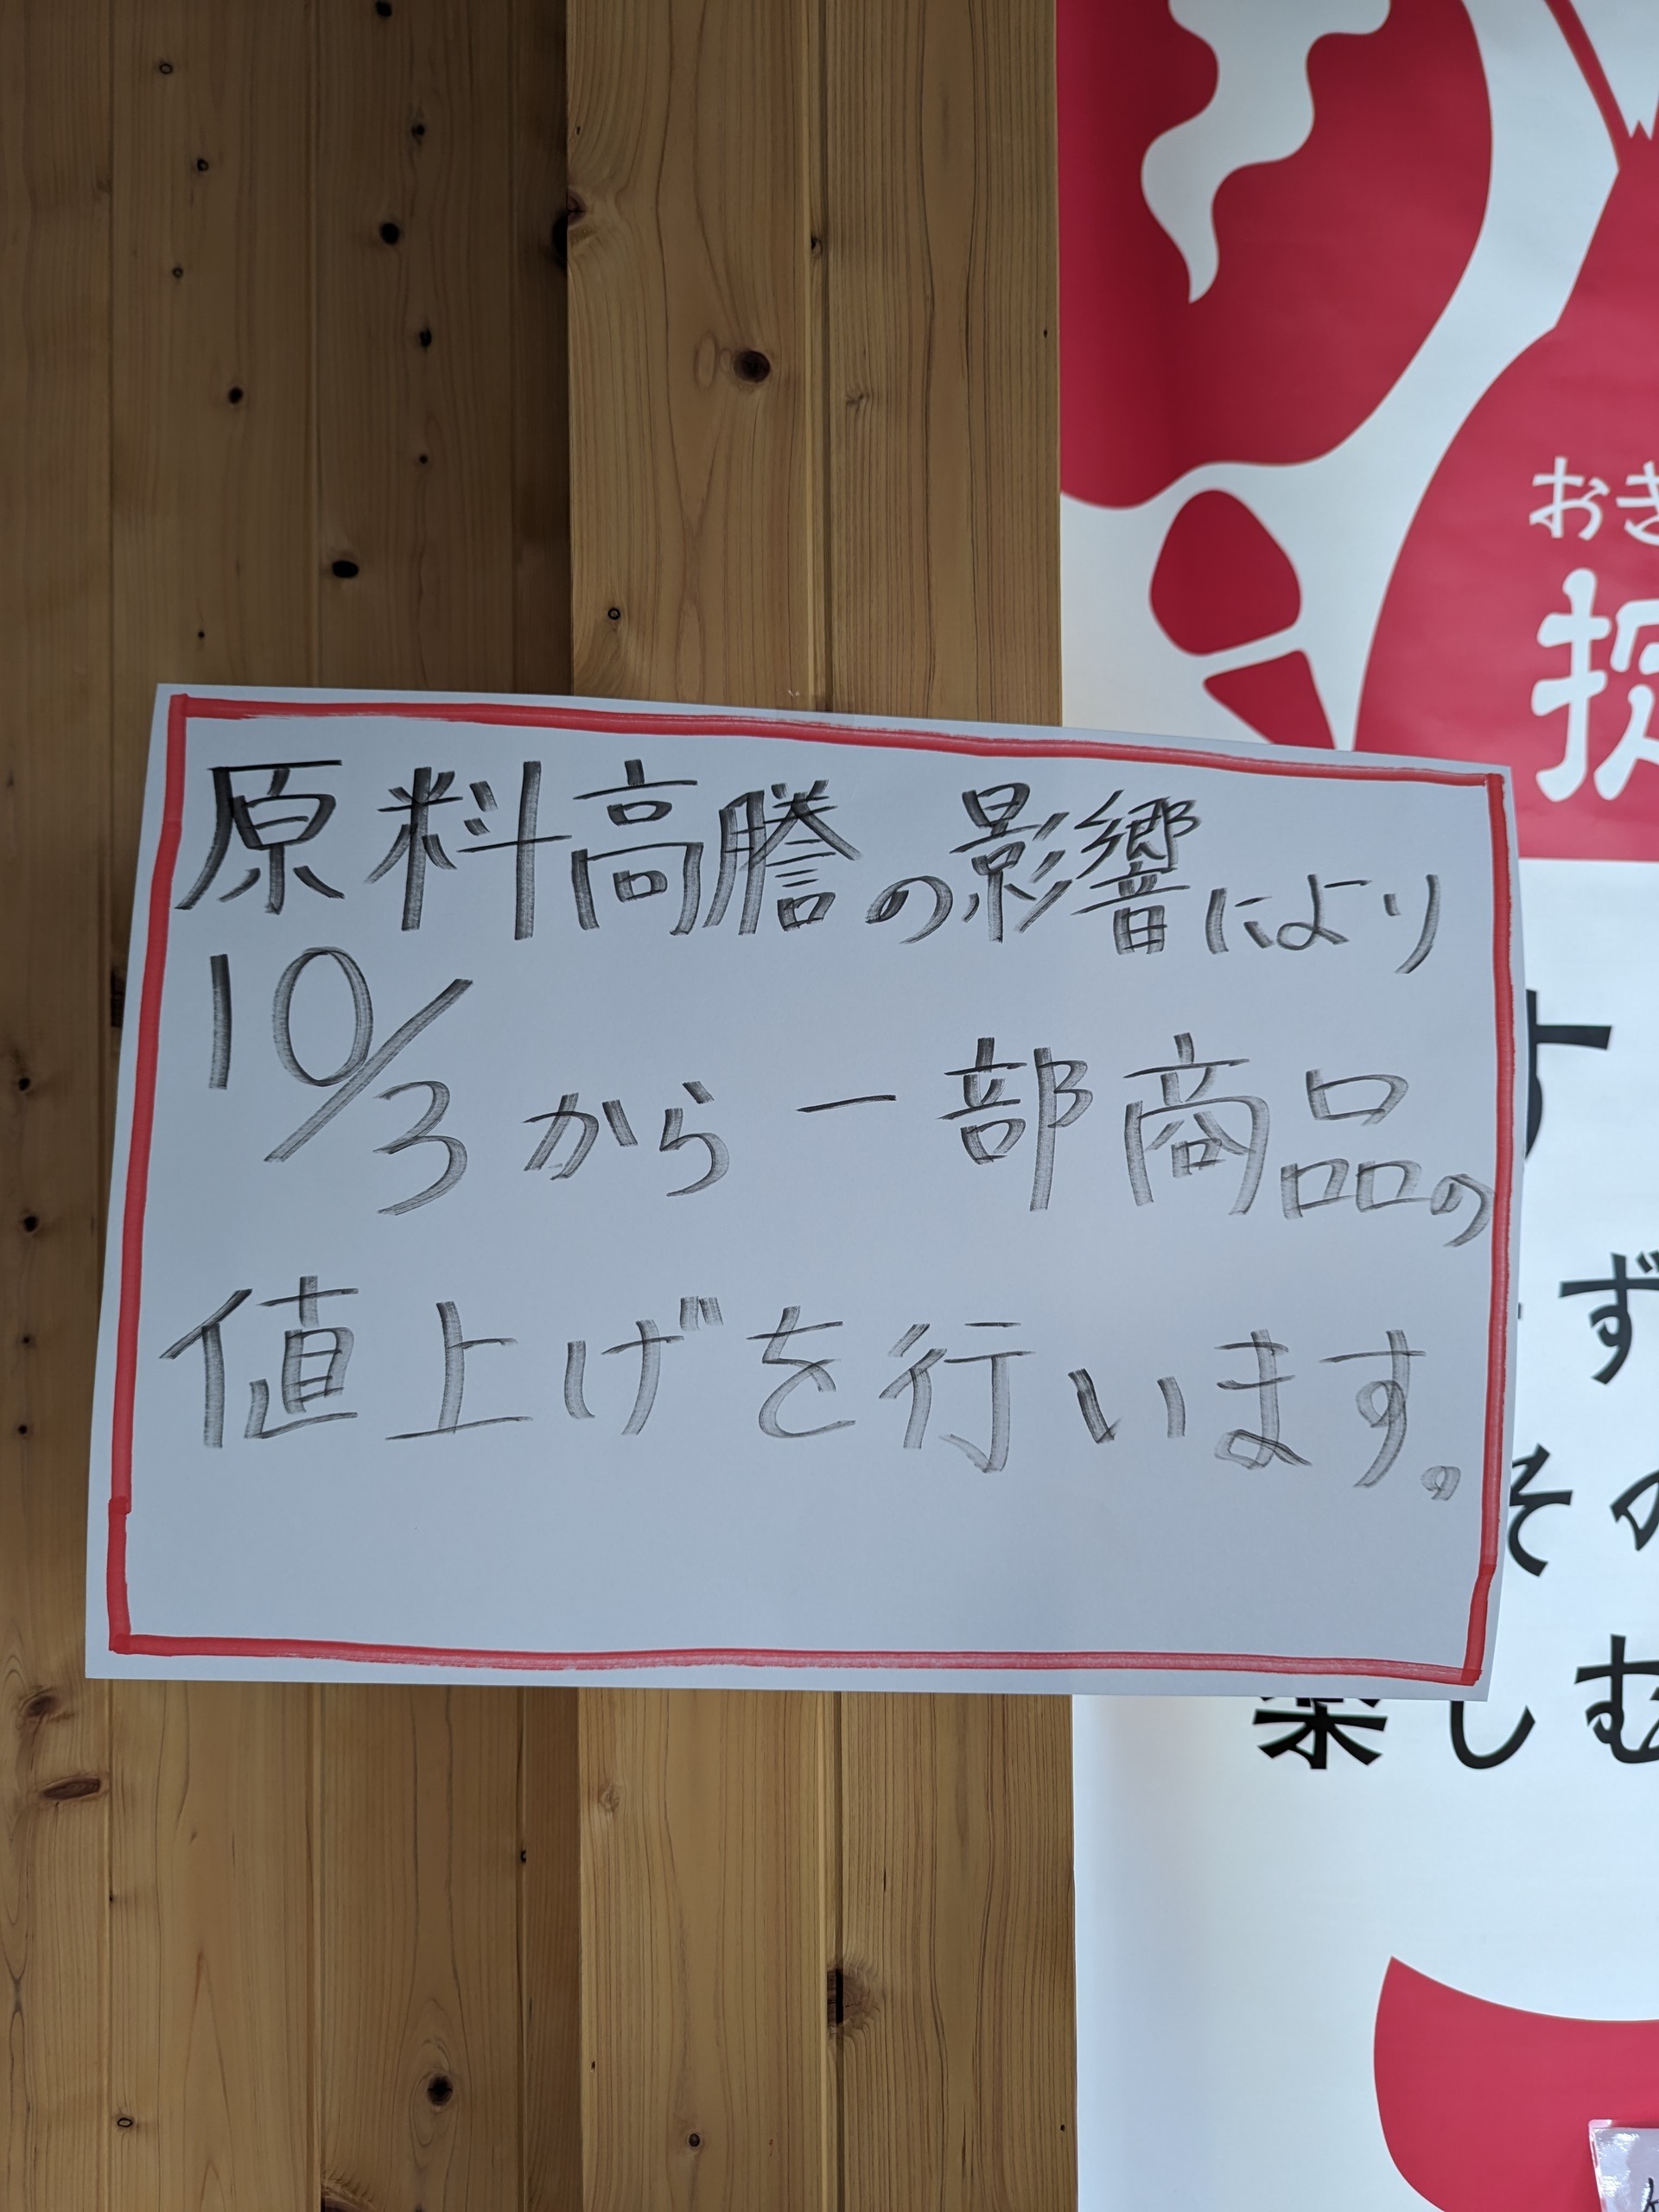 原料高騰の影響により
10/3から一部商品の
値上げを行います。
おき
す
ず
その
楽しむ